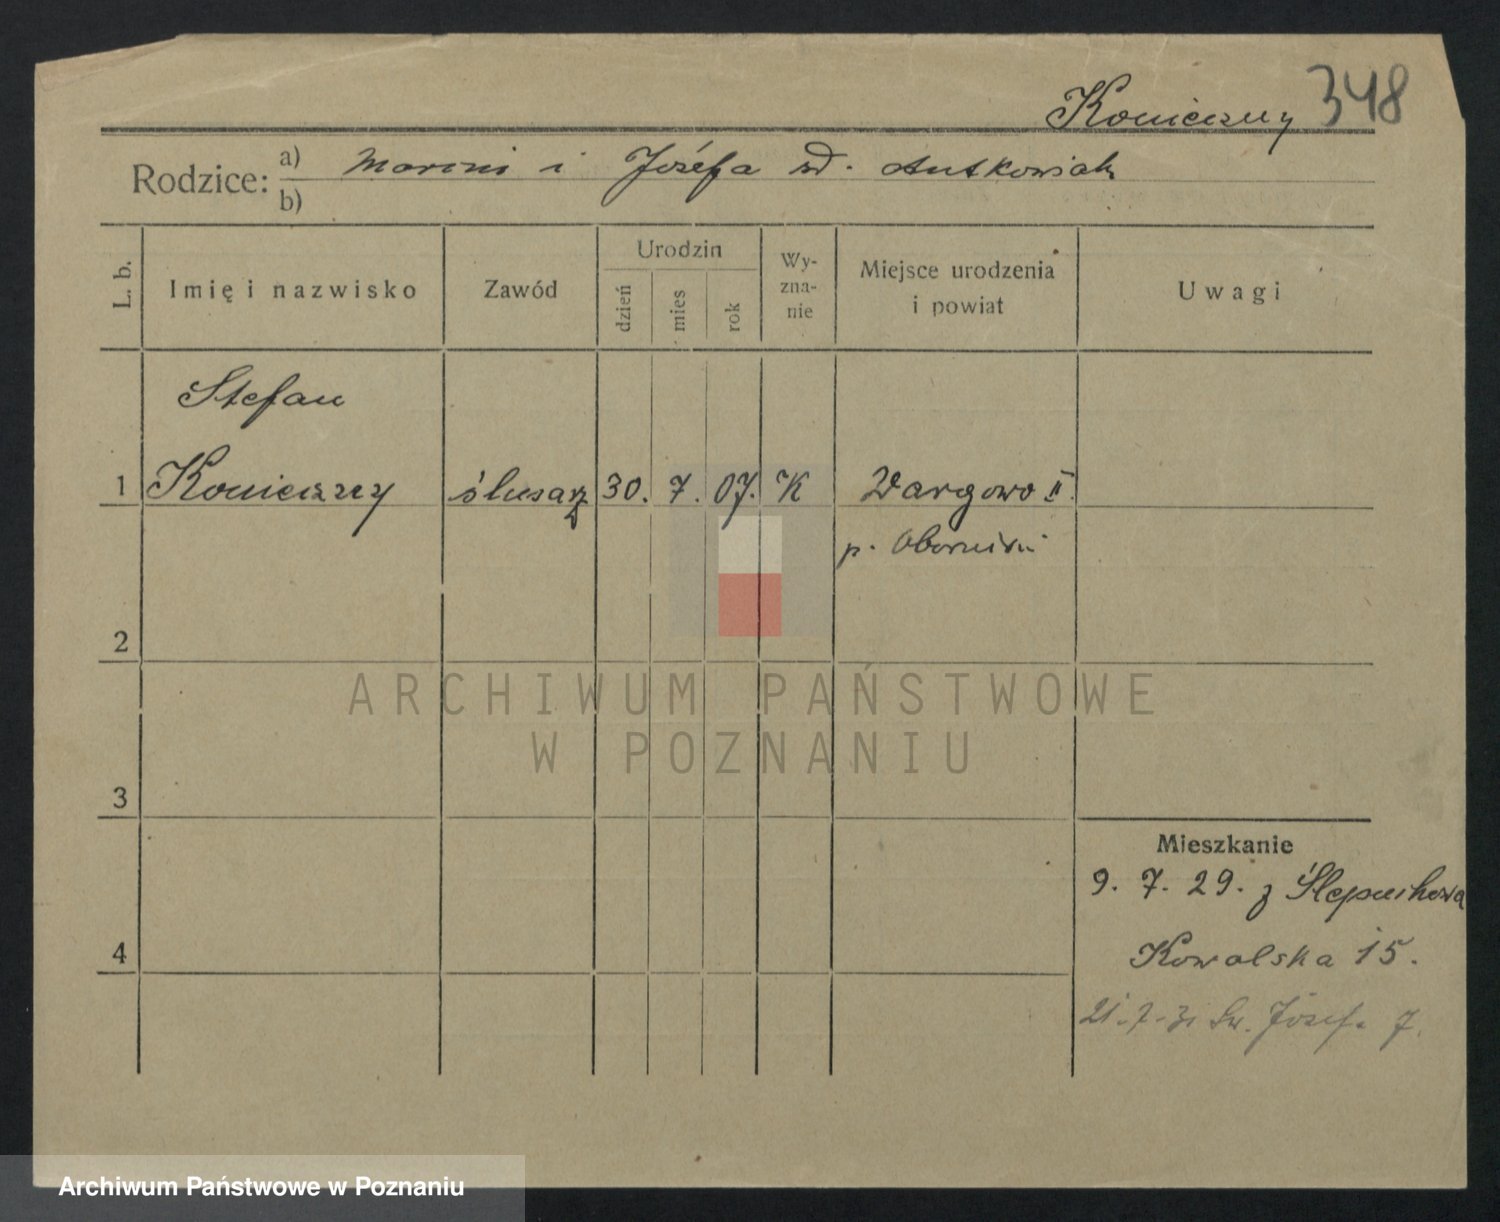 Konieczny 348
Rodzice: a) Marcin i Józefa zd. Antkowiak
b)
L. b.
Imię i nazwisko
Zawód
Urodzin
dzień
mies
rok
Wy-
zna-
nie
Miejsce urodzenia
i powiat
Uwagi
Stefan
1 Konieczny ślusarz 30. 7. 07. K Wargowo II.
p. Oborniki
2
ARCHIWUM PAŃSTWOWE
W POZNANIU
3
Mieszkanie
9. 7. 29. z Ślepuchowa
4
Kowalska 15.
21.-7-31 Św. Józefa 7.
Archiwum Państwowe w Poznaniu